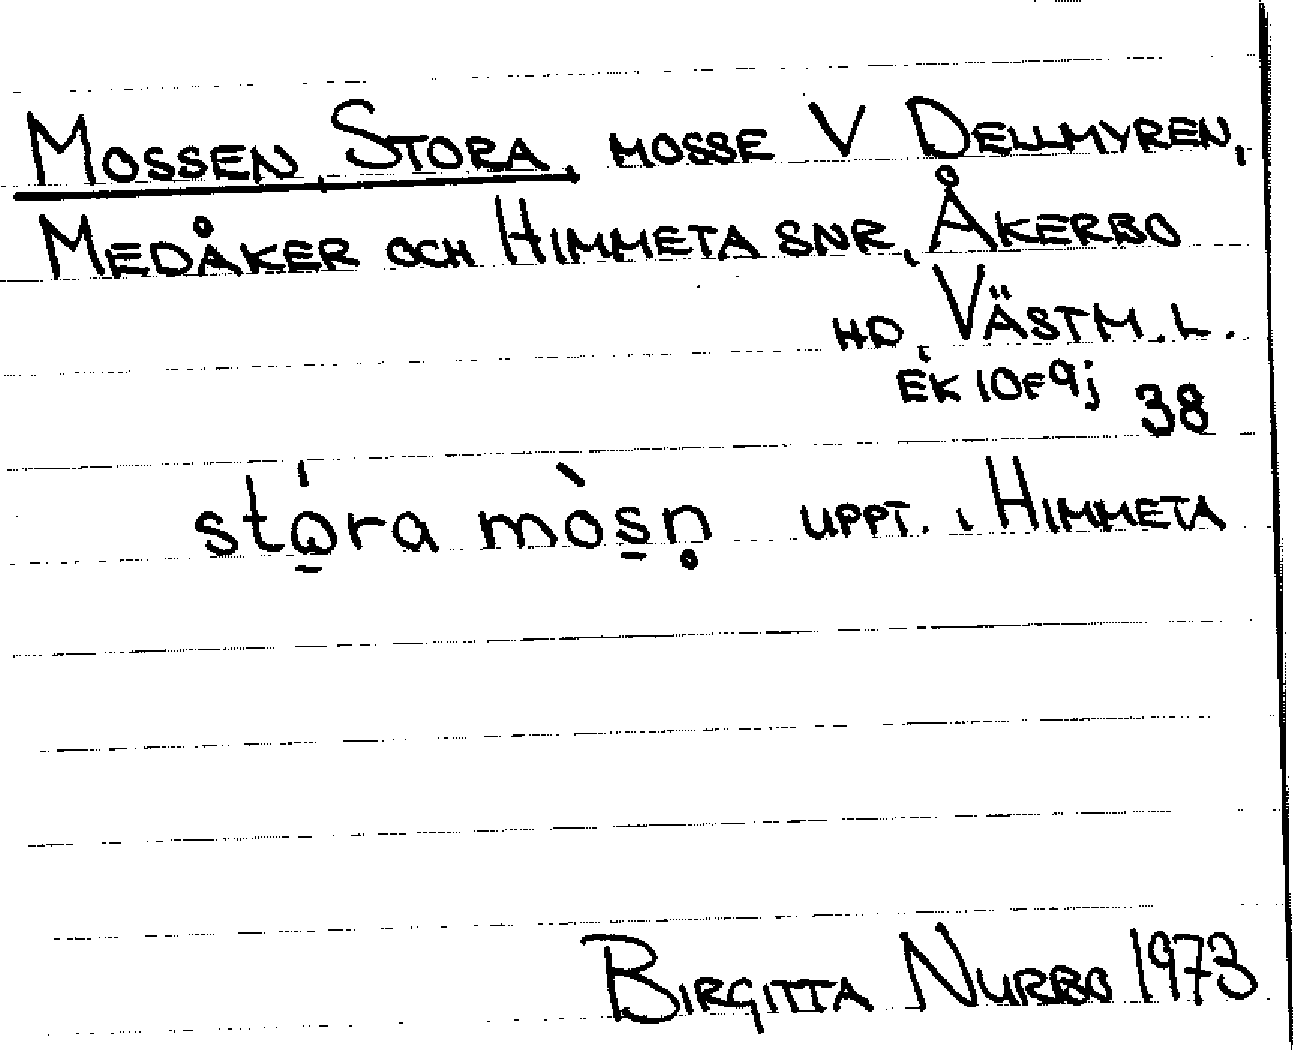 MOSSEN, STORA, MOSSE V DELLMYREN,
MEDÅKER OCH HIMMETA SNR, ÅKERBO
HD, VÄSTM.L.
EK 10F9j 38
stώ̱ra mòs̱n̥ UPPT. I HIMMETA
BIRGITTA NURBO 1973